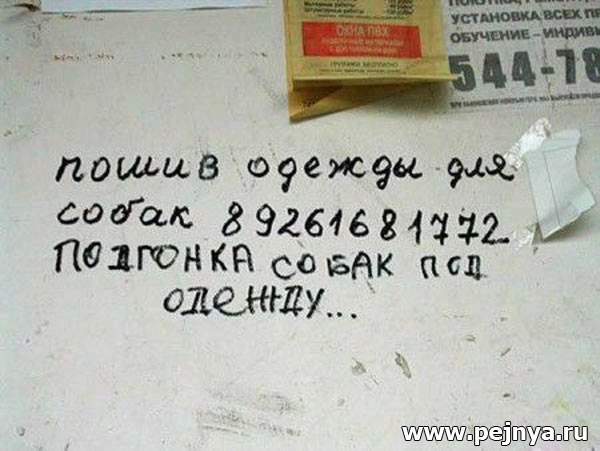 ОКНА ПВХ
УСТАНОВКА ВСЕХ ПР
ОБУЧЕНИЕ – ИНДИВИ
544-78
пошив одежды для
собак 89261681772
ПОДГОНКА СОБАК ПОД
ОДЕЖДУ...
www.pejnya.ru